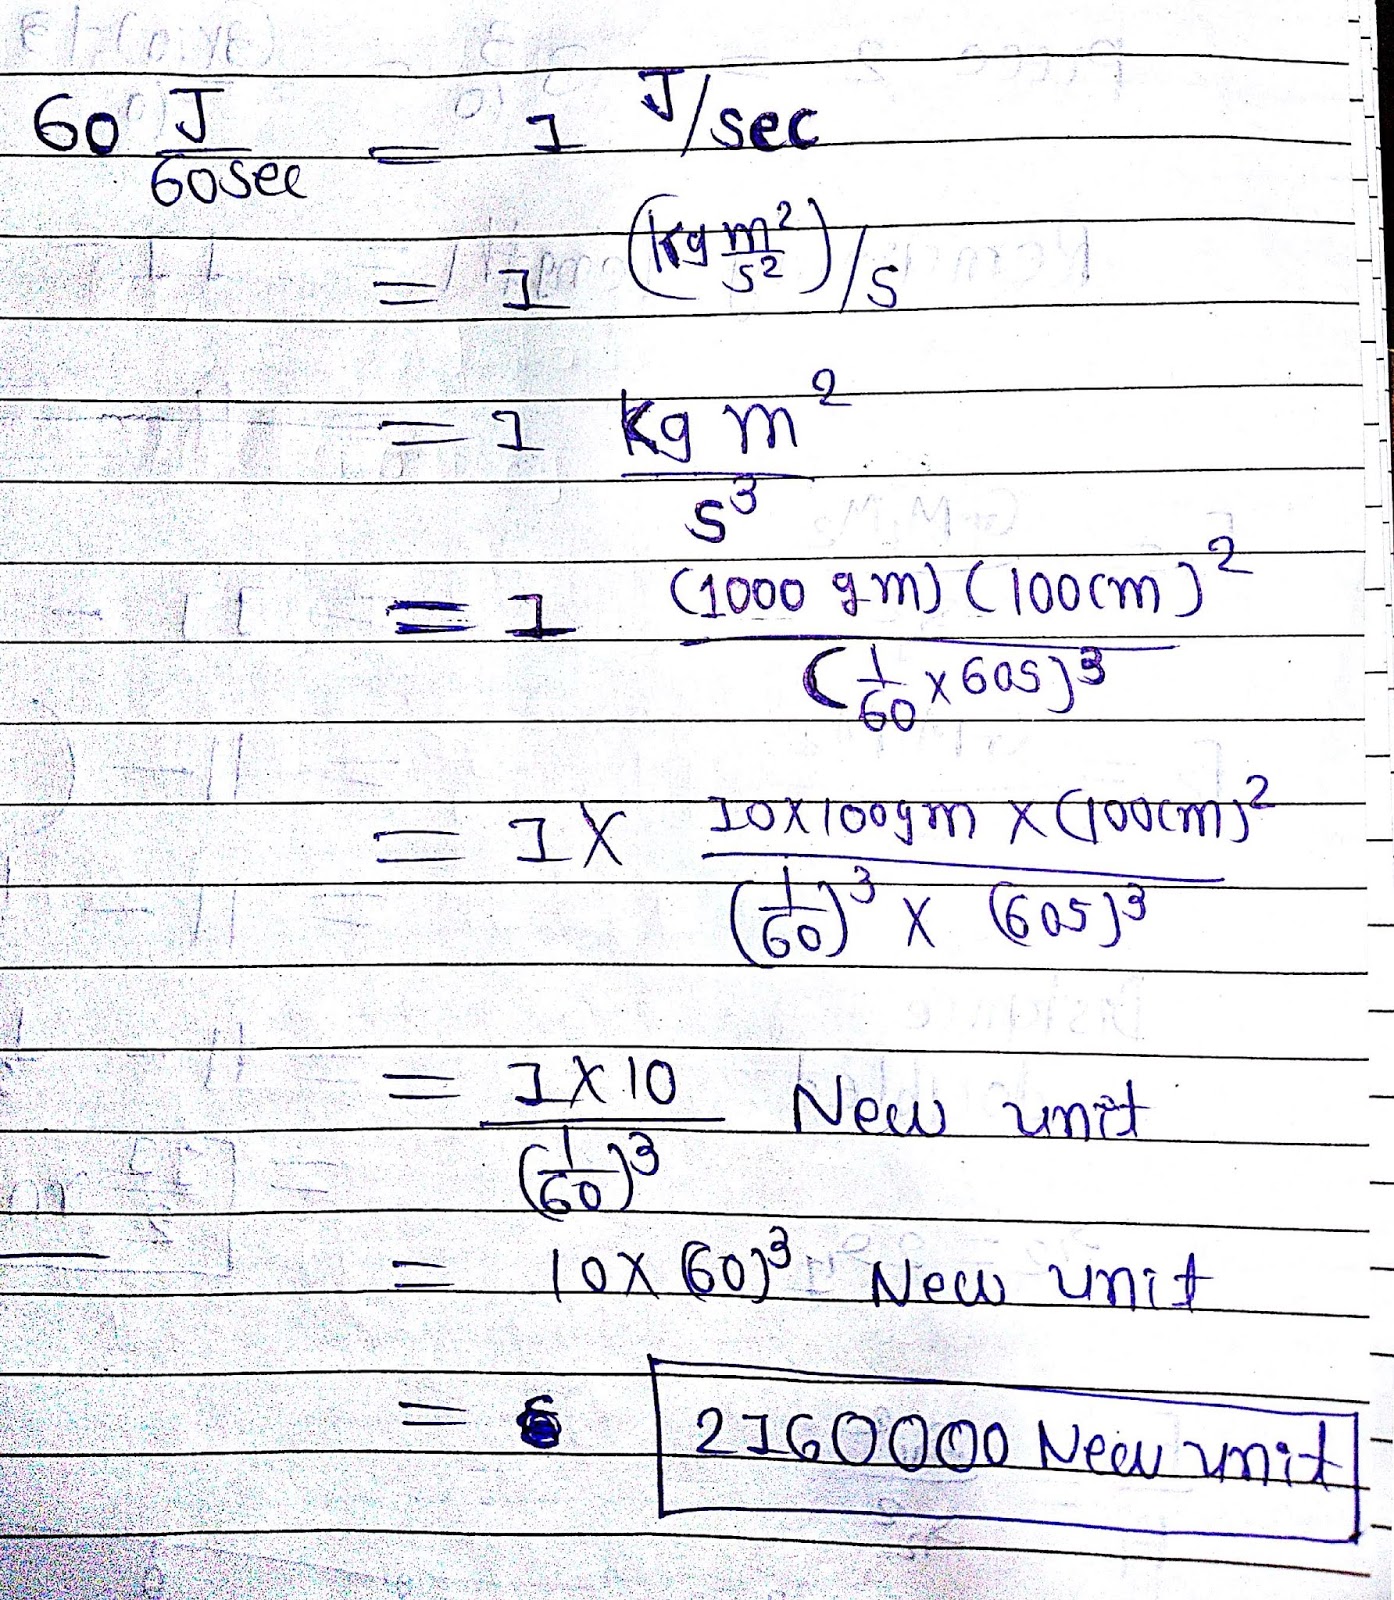 60 J/60sec = 1 J/sec
= 1 (kg m²/s²)/s
= 1 kg m²/s³
= 1 (1000 gm) (100cm)²/(1/60 × 60s)³
= 1 × 10×100gm × (100cm)²/(1/60)³ × (60s)³
= 1×10/(1/60)³ New unit
= 10× (60)³ New unit
= 2160000 New unit